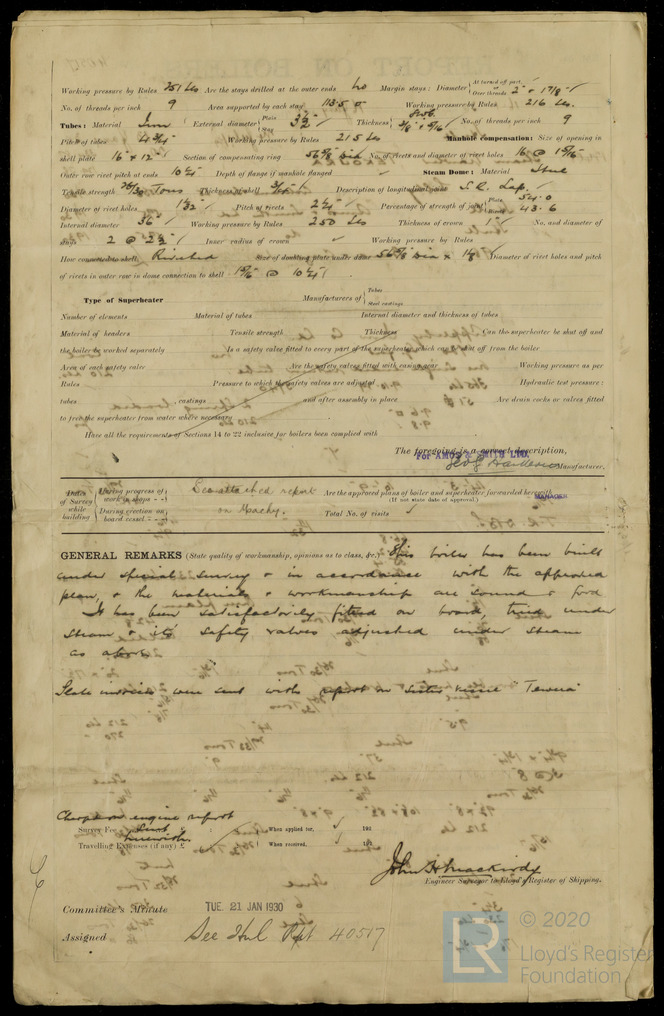 Working pressure by Rules 251 lbs Are the stays drilled at the outer ends No Margin stays: Diameter { At turned off part, or Over threads 2" + 1 7/8"
No. of threads per inch 9 Area supported by each stay 113.5 Working pressure by Rules 216 lbs.
Tubes: Material Iron External diameter { Plain Stay 3 1/2" Thickness 5/16" No. of threads per inch 9
Pitch of tubes 4 3/4" Working pressure by Rules 215 lbs Manhole compensation: Size of opening in
shell plate 16" x 12" Section of compensating ring No. of rivets and diameter of rivet holes 16 @ 15/16
Outer row rivet pitch at ends 10 1/4" Depth of flange if manhole flanged ✓ Steam Dome: Material Steel
Tensile strength 26/30 Tons Thickness of shell Description of longitudinal joint S.R. Lap.
Diameter of rivet holes 1 1/32" Pitch of rivets 2 1/4" Percentage of strength of joint { Plate 54.0 Rivets 43.6
Internal diameter 36" Working pressure by Rules 250 lbs Thickness of crown 1" No. and diameter of
stays 2 @ 2 1/2" Inner radius of crown ✓ Working pressure by Rules
How connected to shell Riveted Size of doubling plate under dome 56 5/8 Dia x 1 1/8" Diameter of rivet holes and pitch
of rivets in outer row in dome connection to shell 1 5/16" @ 10 1/4"
Type of Superheater Manufacturers of { Tubes Steel castings
Number of elements Material of tubes Internal diameter and thickness of tubes
Material of headers Tensile strength Thickness Can the superheater be shut off and
the boiler be worked separately Is a safety valve fitted to every part of the superheater which can be shut off from the boiler
Area of each safety valve Are the safety valves fitted with easing gear Working pressure as per
Rules Pressure to which the safety valves are adjusted Hydraulic test pressure:
tubes , castings and after assembly in place Are drain cocks or valves fitted
to free the superheater from water where necessary
Have all the requirements of Sections 14 to 22 inclusive for boilers been complied with
The foregoing is a correct description,
For AMOS & SMITH LIMD.
Manufacturer.
MANAGER
Dates of Survey while building { During progress of work in shops - - } See attached report Are the approved plans of boiler and superheater forwarded herewith
(If not state date of approval)
{ During erection on board vessel - - - } on Machy. Total No. of visits ✓
GENERAL REMARKS (State quality of workmanship, opinions as to class, &c. This boiler has been built
under special survey & in accordance with the approved
plan, & the materials & workmanship are sound & good
It has been satisfactorily fitted on board, tried under
steam & its safety valves adjusted under steam
as above.
State invoices were sent with report on sister vessel "Tewera"
Charge on engine report
Survey Fee ... : When applied for, 193
Travelling Expenses (if any) £ : When received, 193
John H Mackirdy
Engineer Surveyor to Lloyd's Register of Shipping.
Committee's Minute TUE. 21 JAN 1930
Assigned See Hul Rpt 40517
© 2020
LR Lloyd's Register
Foundation